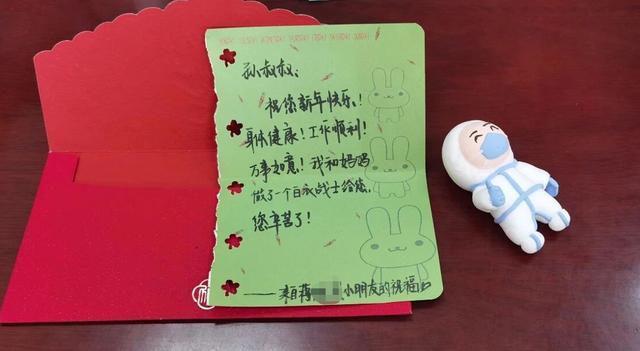 孙叔叔：
祝您新年快乐！
身体健康！工作顺利！
万事如意！我和妈妈
做了一个白衣战士给您，
您辛苦了！
——来自蒋小朋友的祝福